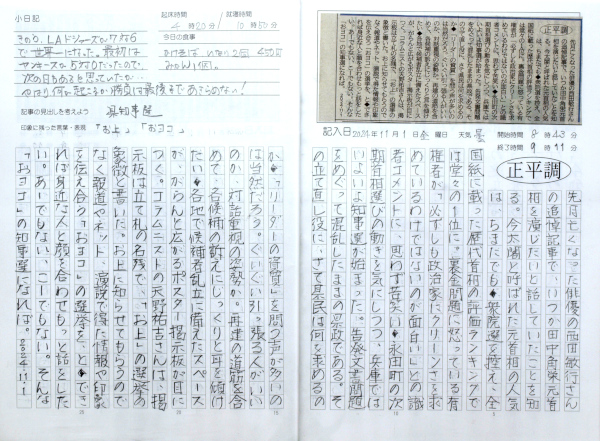 正平調
記入日 2024年11月1日 金 曜日 天気 曇
開始時間 8時43分
終了時間 9時11分
正平調
先月亡くなった俳優の西田敏行さん
の追悼記事で、いつか田中角栄元首
相を演じたいと話していたことを知
る。今太閤と呼ばれた元首相の人気
は、ちまたでも◆衆院選を控え、全
国紙に載った歴代首相の評価ランキングで
は堂々の1位に。裏金問題に怒っている有
権者が「必ずしも政治家にクリーンさを求
めているわけではないのが面白い」との識
者コメントに、思わず苦笑い◆永田町の次
期首相選びの動きを気にしつつ、兵庫では
いよいよ知事選が始まった。告発文書問題
をめぐって混乱したままの県政である。そ
の立て直し役に、さて県民は何を求めるの
か◆「リーダーの資質」を問う声が多いの
は当然だろう。ぐいぐい引っ張る人がいい
のか、対話重視の姿勢か。再建の道筋も含
めて、各候補の訴えにじっくりと耳を傾け
たい◆各地で候補者乱立に備えたスペース
が、がらんと広がるポスター掲示板が目に
つく。コラムニストの天野祐吉さんは、掲
示板は立て札の名残で、「お上」の選挙の
象徴と書いた。お上に知らせてもらうので
なく報道やネット、演説で得た情報や印象
を伝え合う「おヨコ」の選挙を、と◆でき
れば身近な人と顔を合わせてもっと話をした
い。あーでもない、こーでもない。そんな
「おヨコ」の知事選になれば。2024・11・1
小日記
起床時間 4時20分
就寝時間 10時50分
きのう、LAドジャーズが7年ぶり
で世界一になった。最初は
ヤンキースが5対0だったので、
次の日もあると思っていたが…
やはり何が起こるか勝負は最後まであきらめない!
今日の食事
みかん1個。
記事の見出しを考えよう 県知事選
印象に残った言葉・表現 「お上」、「おヨコ」